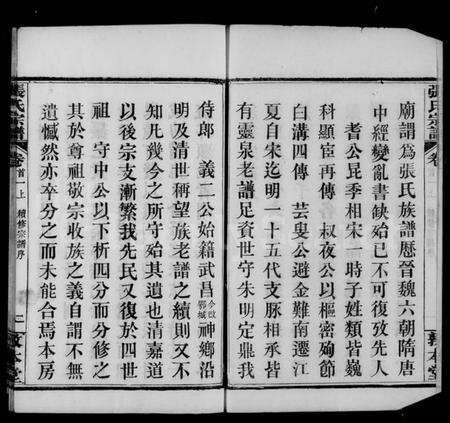 張氏宗譜 卷 敦本堂
廟譜為張氏族譜歷晉魏六朝隋唐
中經變亂書缺始已不可復攷先人
耆公昆季相宋一時子姓類皆巍
科顯宦再傳 叔夜公以樞密殉節
白溝四傳 芸叟公避金難南遷江
夏自宋迄明一十五代支脈相承皆
有靈泉老譜足資世守朱明定鼎我
侍郎 義二公始籍武昌今改鄂城神鄉沿
明及清世稱望族老譜之續則又不
知凡幾今之所守始其遺也清嘉道
以後宗支漸繁我先民又復於四世
祖 守中公以下析四分而分修之
其於尊祖敬宗收族之義自謂不無
遺憾然亦卒分之而未能合焉本房
張氏宗譜 卷首一上 續修宗譜序 二 敦本堂